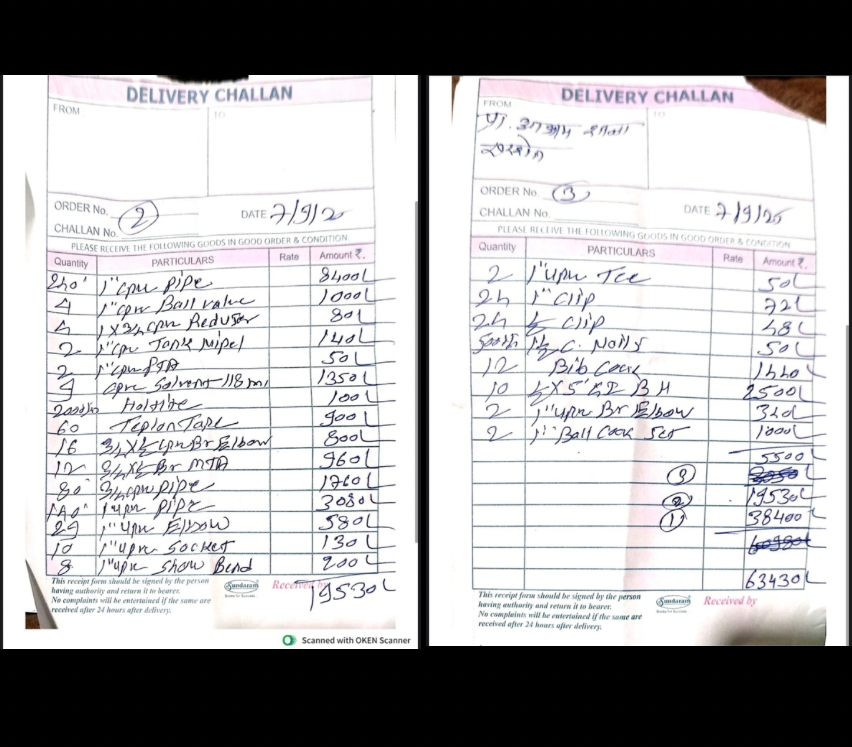 DELIVERY CHALLAN
FROM
TO
ORDER No. 2
CHALLAN No.
DATE 7/9/2
PLEASE RECEIVE THE FOLLOWING GOODS IN GOOD ORDER & CONDITION
Quantity PARTICULARS Rate Amount ₹.
240' 1" cpvc pipe 8400/
4 1" cpvc Ball valve 1000/
4 1 x 3/4 cpvc Reduser 80/
2 1" cpvc Tank nipel 140/
2 1" cpvc 50/
9 cpvc Solvent 118 ml 1350/
100/
60 Teplon Tape 900/
16 3/4 x 1/2 cpvc Br Elbow 800/
12 3/4 x 1/2 Br MTA 960/
80' 3/4 cpvc pipe 1760/
140' 1 upvc pipe 3080/
29 1" upvc Elbow 580/
10 1" upvc Socket 130/
8 1" upvc Show Bend 200/
19530/
This receipt form should be signed by the person
having authority and return it to bearer.
No complaints will be entertained if the same are
received after 24 hours after delivery.
Sundaram
Received by
Scanned with OKEN Scanner
DELIVERY CHALLAN
FROM
TO
प्रा. आश्रम शाळा
ORDER No. 3
CHALLAN No.
DATE 7/9/25
PLEASE RECEIVE THE FOLLOWING GOODS IN GOOD ORDER & CONDITION
Quantity PARTICULARS Rate Amount ₹.
2 1" upvc Tee 50/
24 1" clip 72/
24 1/2 clip 48/
1 1/2 C. Nails 50/
12 Bib Cock 1440/
10 2500/
2 1" upvc Br Elbow 340/
2 1" Ball Cock Set 1000/
5500/
3
2 19530/
1 38400/
63430/
This receipt form should be signed by the person
having authority and return it to bearer.
No complaints will be entertained if the same are
received after 24 hours after delivery.
Sundaram
Received by